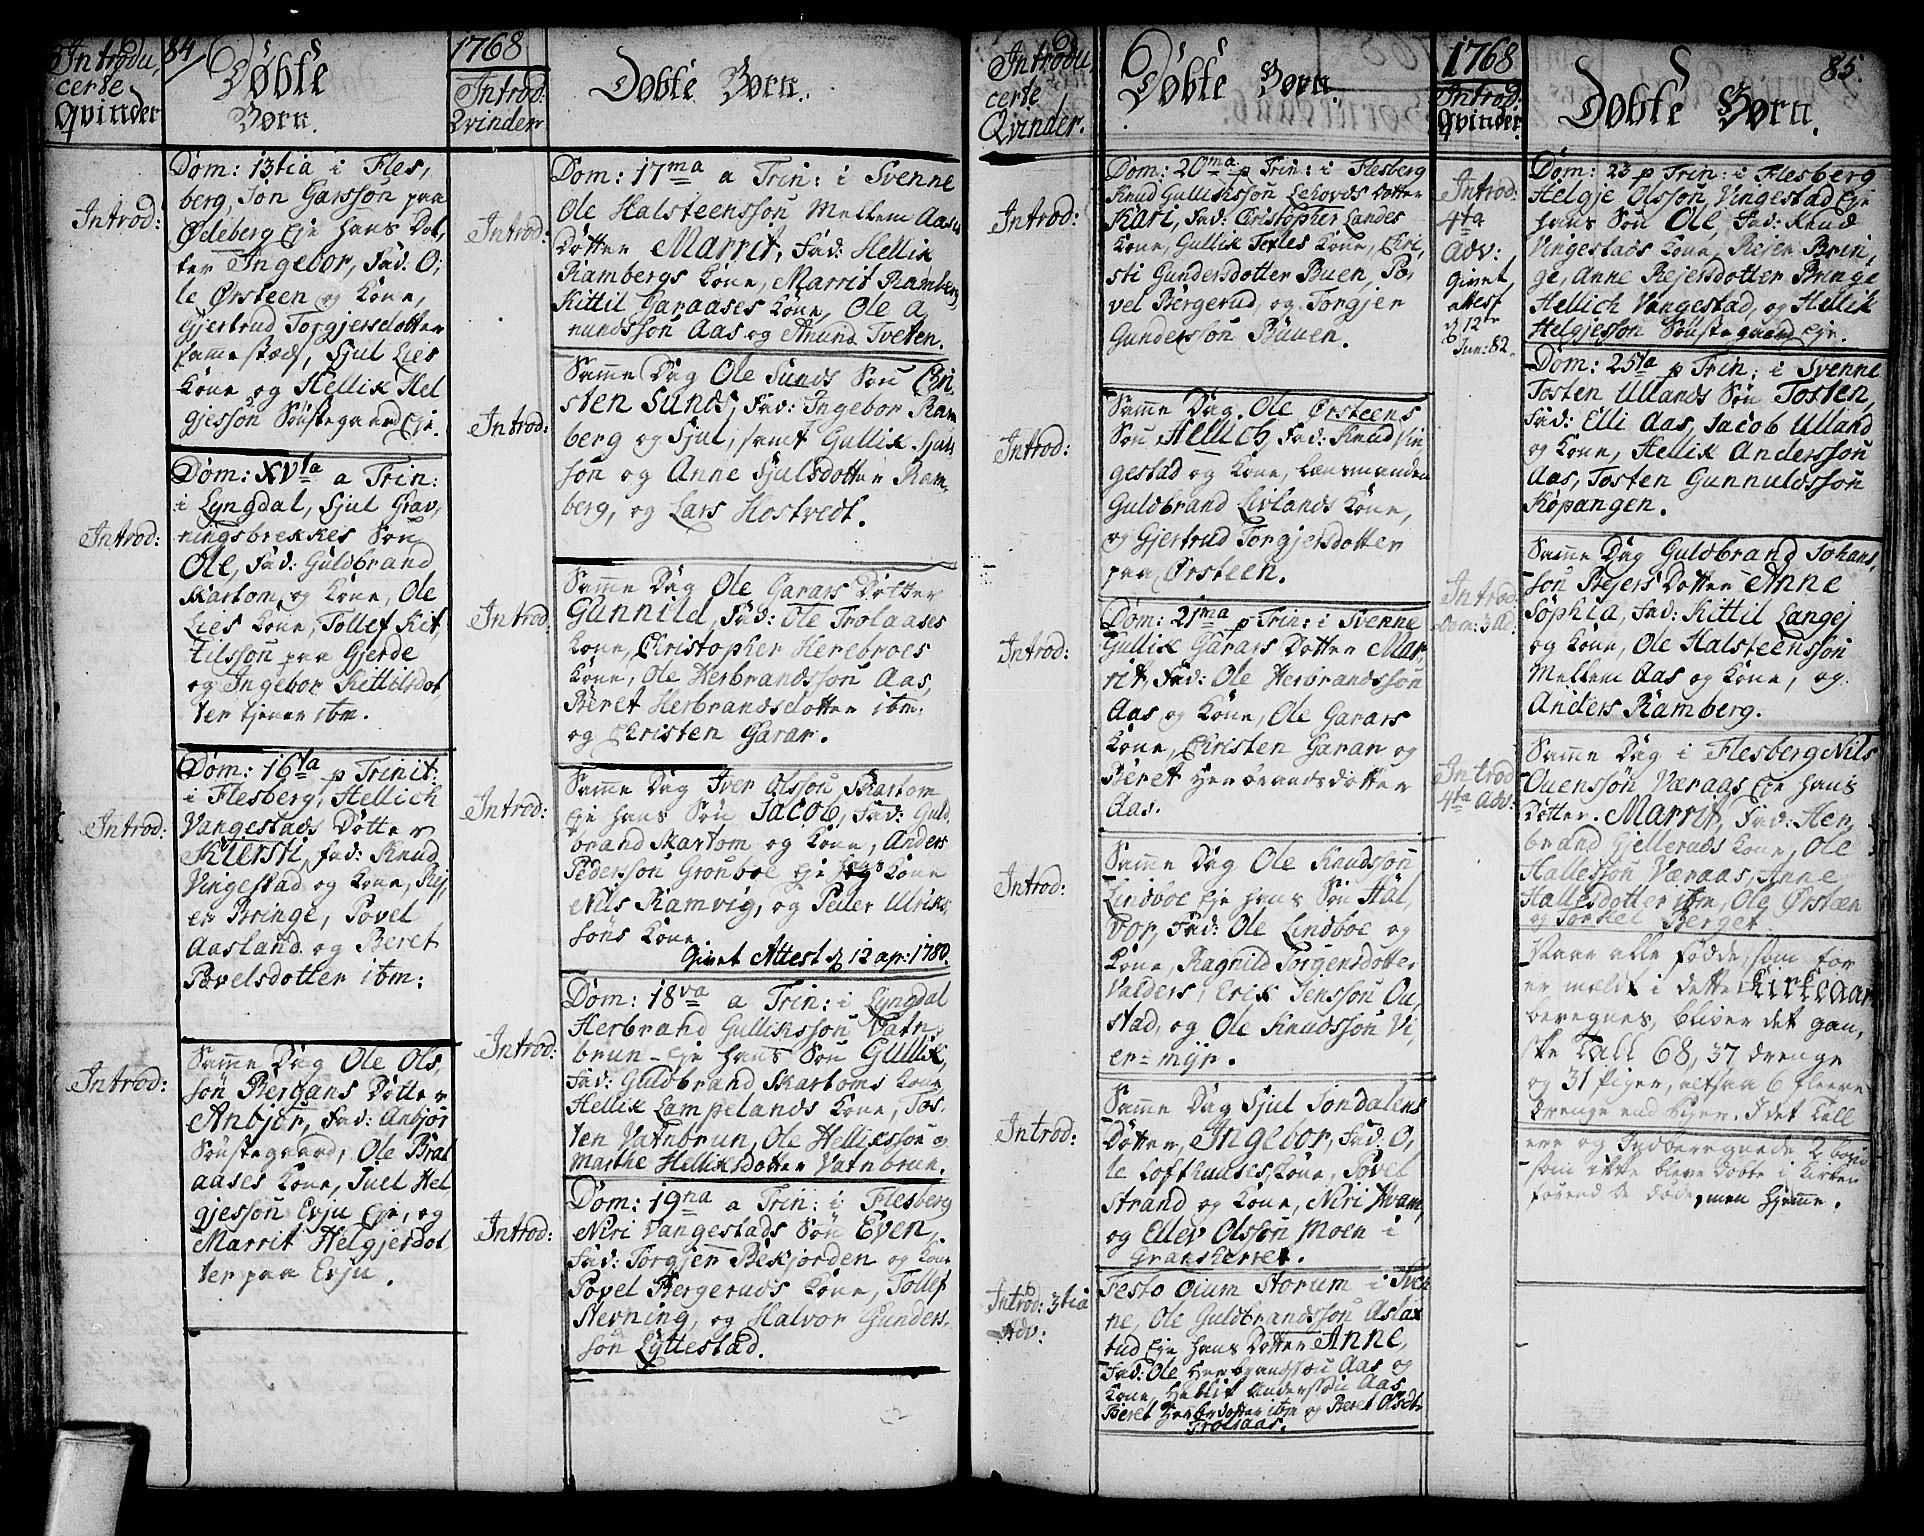 Introdu,
certe
Qvinder
84
Døbte
Børn.
Introd:
Dom: 13tia i Fles,
berg, Jon Garsson paa
Ødeberg Eje hans Dot,
ter Ingebor, Fad: O,
le Ørsteen og Kone,
Gjertrud Torgjersdotter
samestæds, Sjul Lies
Kone og Hellik Hel
gjesson Sønstegaard Eje.
Introd:
Dom: XVta a Trin:
i Lyngdal, Sjul Grav,
ningsbrekkes Søn
Ole, Fad: Guldbrand
Skartom og Kone, Ole
Lies Kone, Tollef Kit,
tilsson paa Gjerde
og Ingebor Kittilsdot
ter tjener ibm.
Introd:
Dom: 16ta p Trinit:
i Flesberg, Hellich
Vangestads Dotter
Kiersti, Fad: Knud
Vingestad og Kone, Rej,
er Bringe, Povel
Aasland og Beret
Povelsdotter ibm:
Introd:
Samme Dag Ole Ols,
søn Bergans Dotter
Anbjør, Fad: Anbjør
Sønstegaard, Ole Brat
aases Kone, Juel Hel
gjesson Evju Eje, og
Marrit Helgjerdot
ter paa Evju.
1768
Introd:
Qvinder
Døbte Børn.
Introd:
Dom: 17ma a Trin: i Svenne
Ole Halsteensson Mellem Aases
Dotter Marrit, Fad: Hellik
Rambergs Kone, Marrit Ramberg,
Kittil Garaases Kone, Ole A
mundsson Aas og Amund Tveten.
Introd:
Samme Dag Ole Sunds Søn Cri,
sten Sund, Fad: Ingebor Ram
berg og Sjul, samt Gullik Sjuls
son og Anne Sjulsdotter Ram,
berg, og Lars Hostvedt.
Introd:
Samme Dag Ole Garars Dotter
Gunnild, Fad: Ole Trolaases
Kone, Christopher Herebroes
Kone, Ole Herbrandsson Aas,
Beret Herbrandsdotter ibm:
og Christen Garar.
Introd:
Samme Dag Iver Olsson Skartom
Eje hans Søn Jacob, Fad: Guld,
brand Skartom og Kone, Anders
Pedersson Gronboe Eje hans Kone
Nils Ramvig, og Peder Ulriks,
sons Kone
Givet Attest d 12 apr: 1780.
Introd:
Dom: 18va a Trin: i Lyngdal
Herbrand Gulliksson Vatn,
brun Eje hans Søn Gullik,
Fad: Guldbrand Skartoms Kone,
Hellik Lampelands Kone, Tos,
ten Vatnbrun, Ole Helliksson og
Marthe Helliksdotter Vatnbrun.
Introd:
Dom: 19na a Trin: i Flesberg
Niri Vangestads Søn Even,
Fad: Torgjer Bekjorden og Kone
Povel Bergeruds Kone, Tollef
Stevning, og Halvor Gunders,
son Lyttestad.
Introdu,
certe
Qvinder.
Døbte Børn.
Introd:
Dom: 20ma p Trin: i Flesberg
Knud Gulliksson Lebords Dotter
Kari, Fad: Cristopher Landes
Kone, Gullik Texles Kone, Cri,
sti Gundersdotter Buen, Po,
vel Bergerud, og Torgjer
Gundersson Buuen.
Introd:
Samme Dag Ole Ørsteens
Søn Hellich Fad: Knud Vin
gestad og Kone, Lænsmanden
Guldbrand Livlands Kone,
og Gjertrud Torgjersdotter
paa Ørsteen.
Introd:
Dom: 21ma p Trin: i Svenne
Gullik Garars Dotter Mar,
rit, Fad: Ole Herbrandsson
Aas og Kone, Ole Garars
Kone, Christen Garar og
Beret Herbrandsdotter
Aas.
Introd:
Samme Dag Ole Knudsson
Lindboe Eje hans Søn Hal,
vor, Fad: Ole Lindboe og
Kone, Ragnild Torgensdotter
Valders, Erik Jensson Ou
stad, og Ole Knudsson Vi,
er=myr.
Introd:
Samme Dag Sjul Jondalens
Dotter, Ingebor, Fad: O,
le Lofthuuses Kone, Povel
Strand og Kone, Niri Hvam,
og Ellev Olsson Moen i
Gransherret.
Introd: 3tia
Adv:
Festo Oium Storum i Sven
ne, Ole Guldbrandsson Aslax
rud Eje hans Dotter Anne,
Fad: Ole Herbrandsson Aas og
Kone, Hellik Anderssøn Aas
Beret Herbrdotter ibm og Beret
Trolsaas.
1768
Introd:
Qvinder
85.
Døbte Børn.
Introd:
4ta
Adv:
Givet
attest
d 12te
Jun: 82.
Dom: 23 p Trin: i Flesberg
Helgje Olsson Vingestad Eje
hans Søn Ole, Fad: Knud
Vingestads Kone, Rejer Brin,
ge, Anne Rejersdotter Bringe
Hellich Vangestad, og Hellik
Helgjesson Sønstegaard Eje.
Dom: 25ta p Trin: i Svenne
Tosten Ullands Søn Tosten,
Fad: Elli Aas, Jacob Ulland
og Kone, Hellik Andersson
Aas, Tosten Gunnuldsson
Kopangen.
Introd:
Dom: 3 Ad:
Samme Dag Guldbrand Johans,
son Rejers Dotter Anne
Sophia, Fad: Kittil Langej
og Kone, Ole Halsteensson
Mellem Aas og Kone, og
Anders Ramberg.
Introd
4ta Adv:
Samme Dag i Flesberg Nils
Ouensson Væraas Eje hans
Dotter Marrit, Fad: Her,
brand Gjelleruds Kone, Ole
Hallesson Væraas, Anne
Hallesdotter ibm, Ole Ørsteen
og Torkel Berget.
Naar alle fødde, som før
er meldt i dette Kirkeaar
beregnes, bliver det gan,
ske Tall 68, 37 drenge
og 31 Piger, altsaa 6 fleere
Drenge end Piger. I det Tall
ere og Indberegnede 2 børn
som ikke bleve døbte i Kirken
forend de døde, men hjemme.